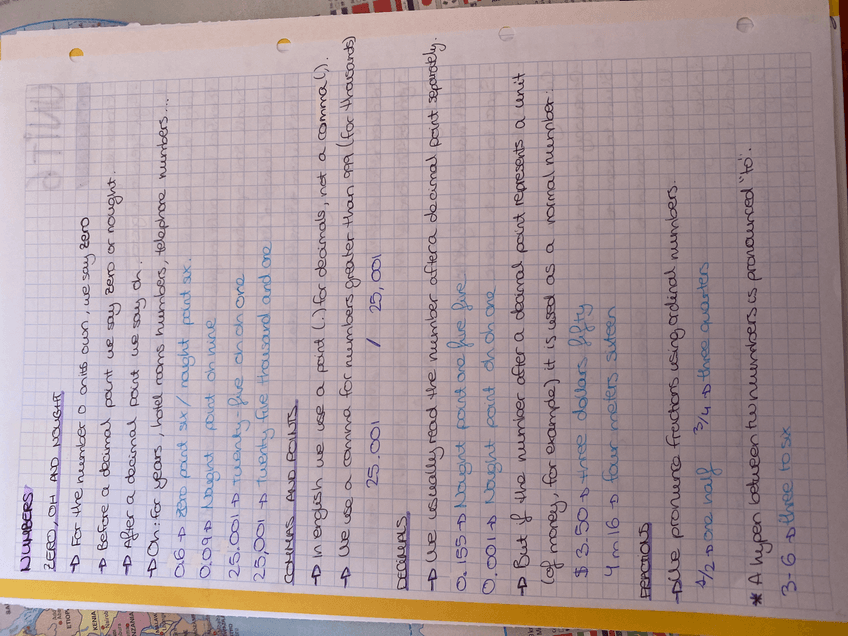 NUMBERS
ZERO, OH AND NOUGHT
→ For the number 0 on its own, we say zero
→ Before a decimal point we say zero or nought.
→ After a decimal point we say oh.
→ Oh: For years, hotel rooms numbers, telephone numbers....
0.6 → zero point six / nought point six.
0.09 → Nought point oh nine
25.001 → twenty-five oh oh one
25,001 → Twenty five thousand and one
COMMAS AND POINTS
→ In english we use a point (.) for decimals, not a comma (,).
→ We use a comma for numbers greater than 999 (for thousands)
25.001 / 25,001
DECIMALS
→ We usually read the number after a decimal point separately.
0.155 → Nought point one five five
0.001 → Nought point oh oh one
→ But if the number after a decimal point represents a unit
(of money, for example) it is used as a normal number:
$3.50 → three dollars fifty
4m16 → four meters sixteen
FRACTIONS
→ We pronunce fractions using ordinal numbers.
1/2 → one half 3/4 → three quarters
* A hypen between two numbers is pronounced "to".
3-6 → three to six
UNIT 6
KENIA